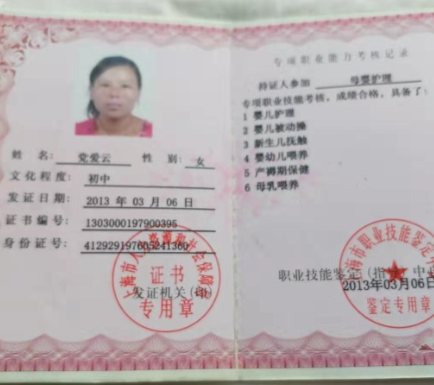 姓 名: 党爱云 性 别: 女
文化程度: 初中
发证日期: 2013 年 03 月 06 日
证书编号: 1303000197900395
身份证号: 412929197603241360
证书
发证机关(印)
专用章
专项职业能力考核记录
持证人参加 母婴护理
专项职业技能考核,成绩合格,具备了:
1 婴儿护理
2 婴儿被动操
3 新生儿抚触
4 婴幼儿喂养
5 产褥期保健
6 母乳喂养
职业技能鉴定(指
2013年03月06日
鉴定专用章